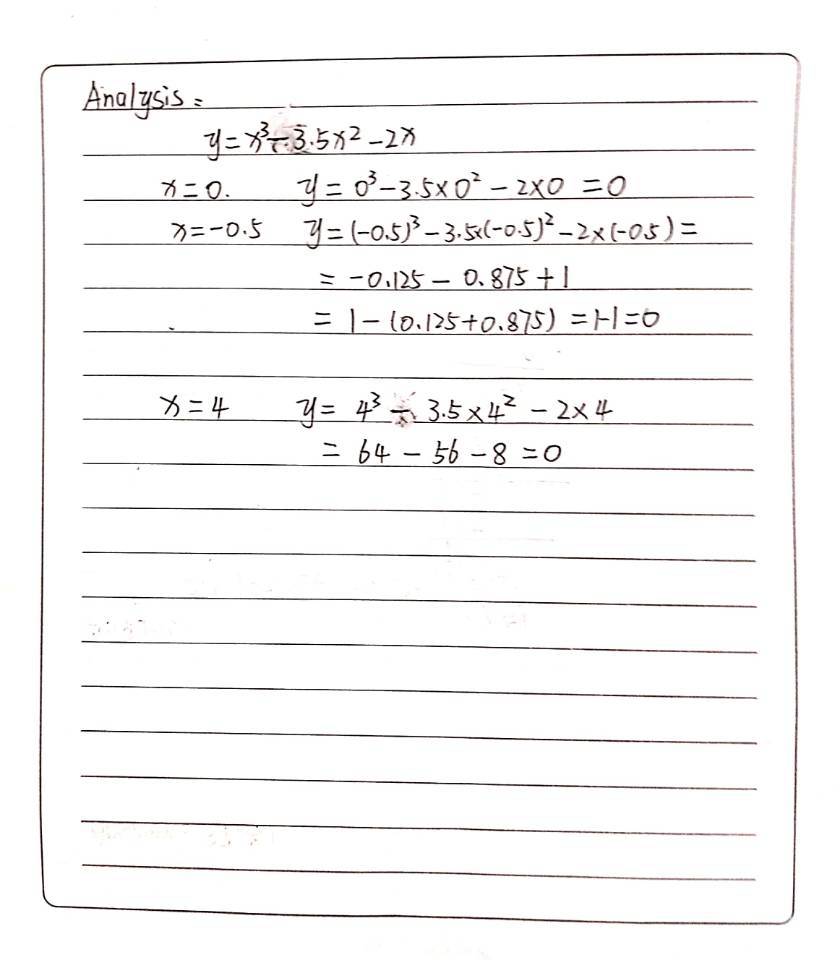 Analysis:
y=x³-3.5x²-2x
x=0. y=0³-3.5×0²-2×0=0
x=-0.5 y=(-0.5)³-3.5×(-0.5)²-2×(-0.5)=
=-0.125-0.875+1
=1-(0.125+0.875)=1-1=0
x=4 y=4³-3.5×4²-2×4
=64-56-8=0